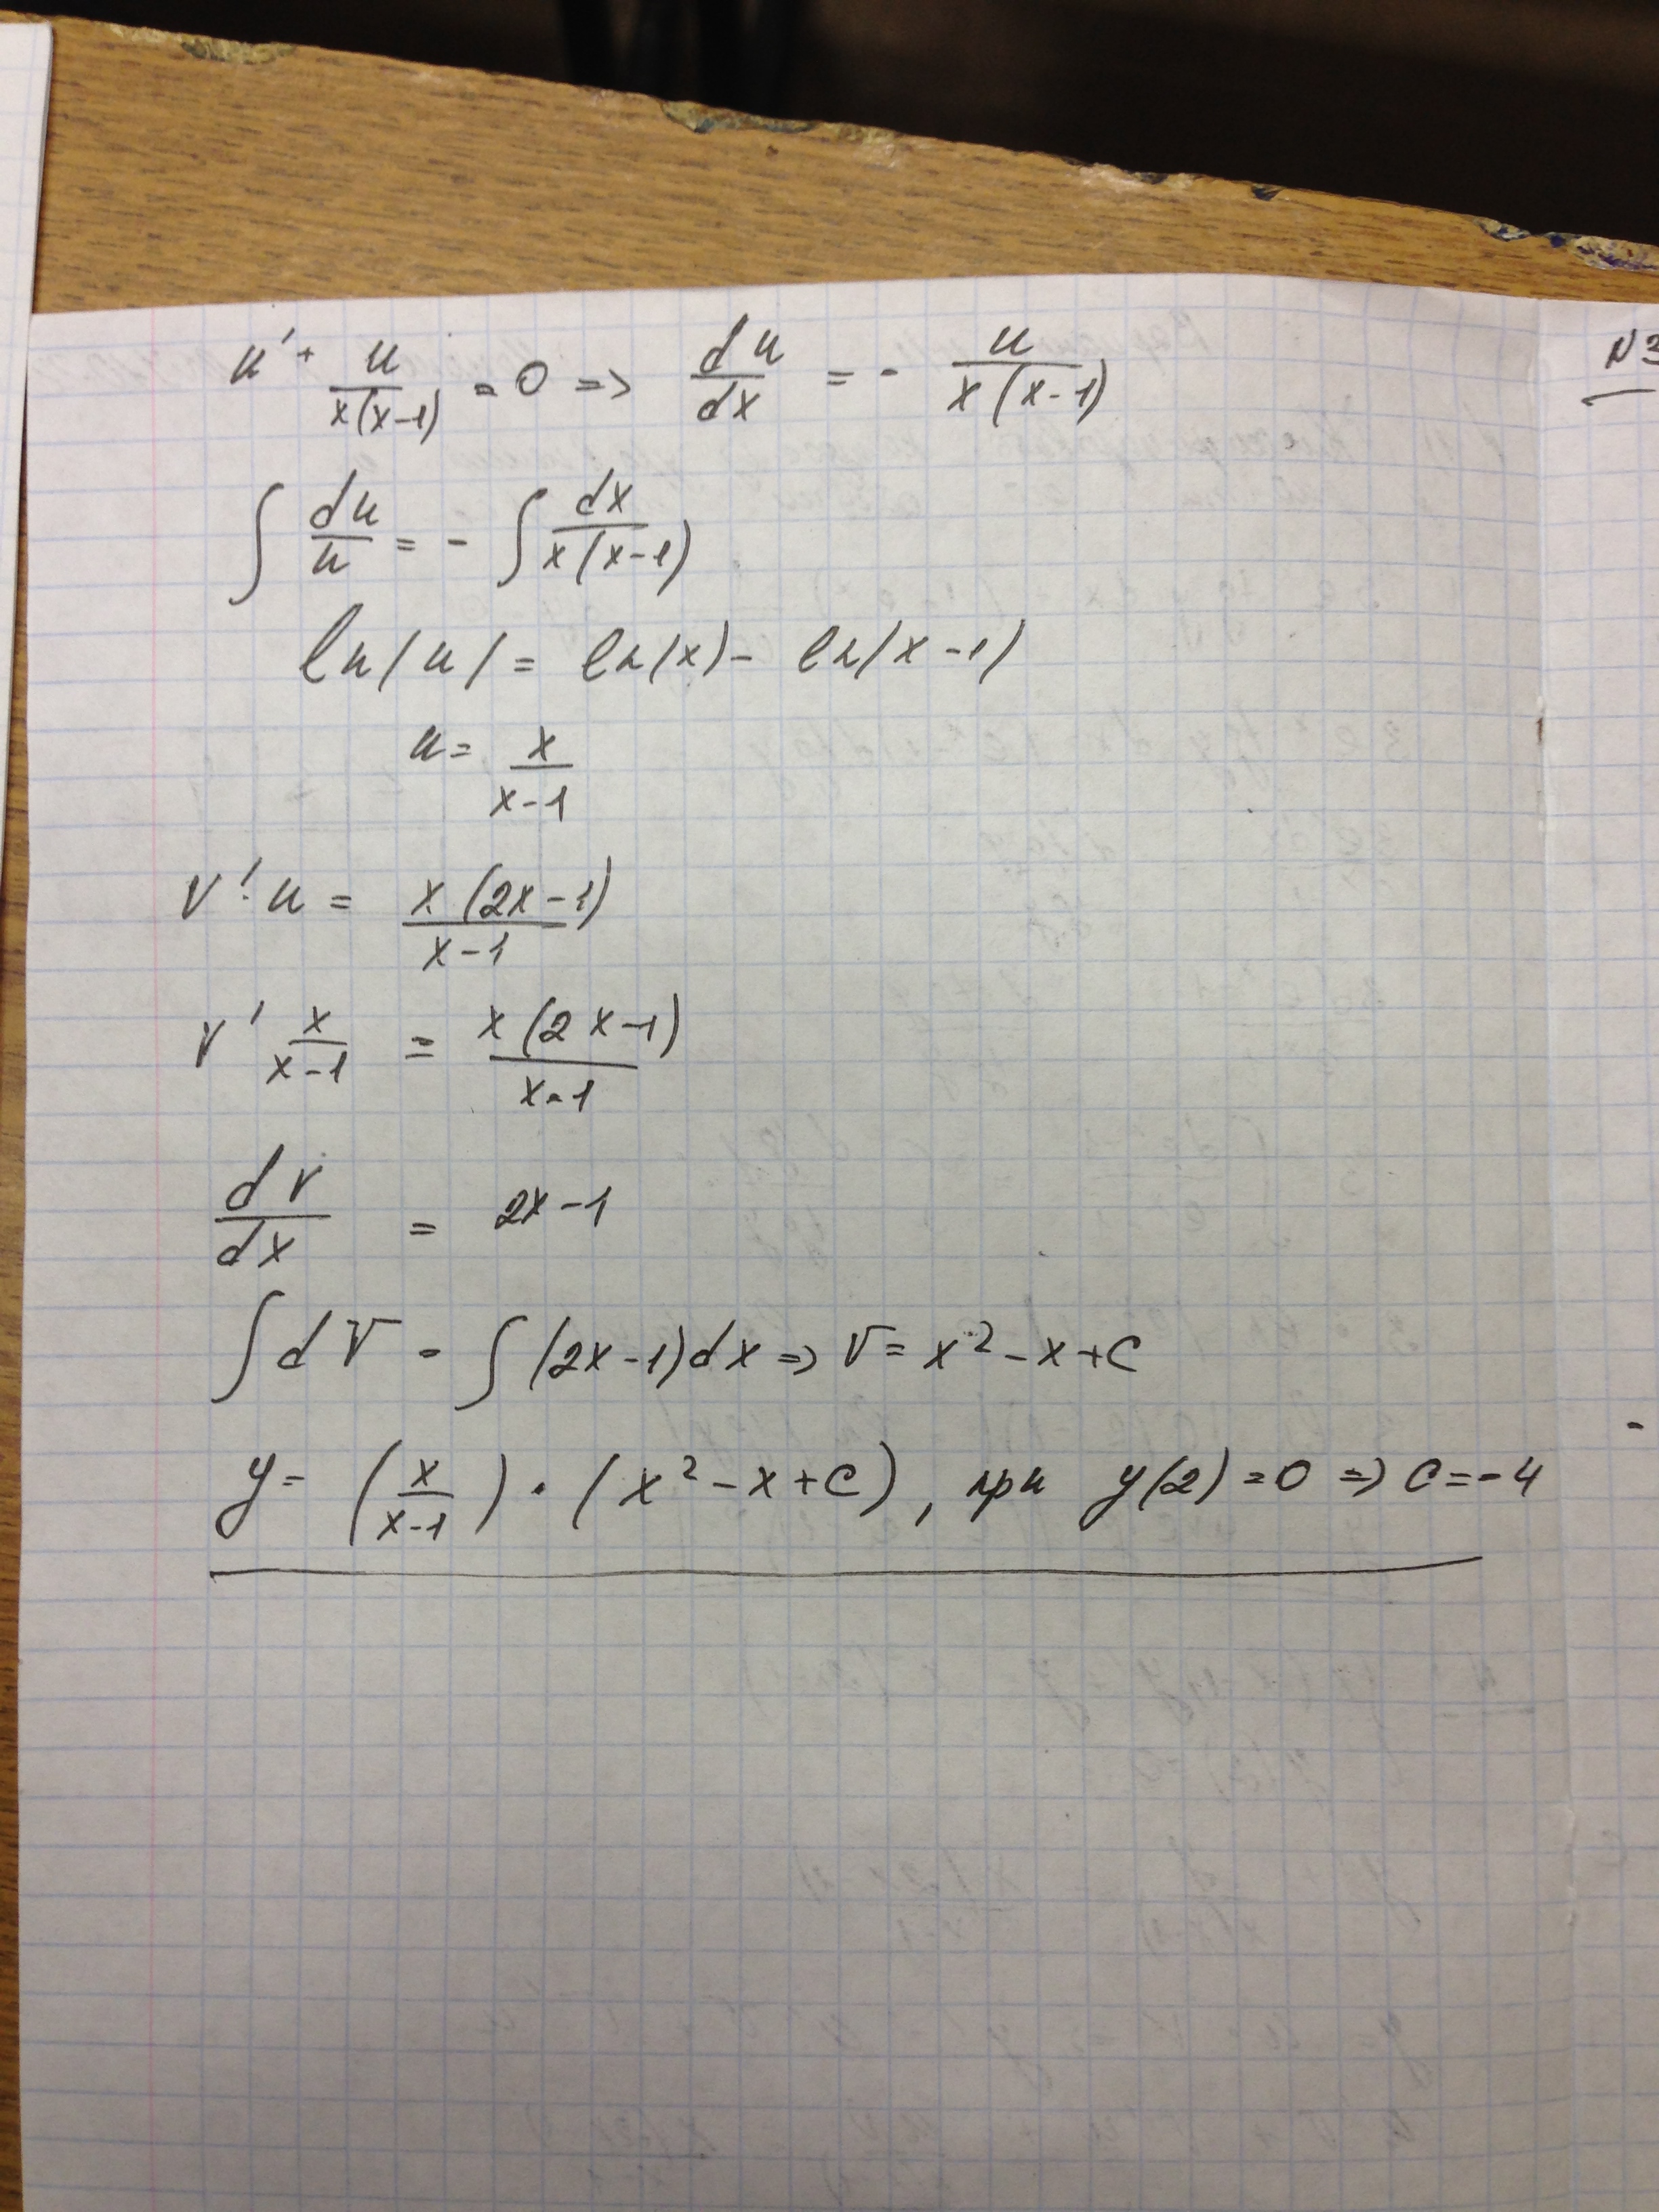 u' + u/(x(x-1)) = 0 => du/dx = - u/(x(x-1))
∫ du/u = - ∫ dx/(x(x-1))
ln|u| = ln(x) - ln(x-1)
u = x/(x-1)
v'·u = x(2x-1)/(x-1)
v' x/(x-1) = x(2x-1)/(x-1)
dv/dx = 2x-1
∫dv = ∫(2x-1)dx => v = x² - x + c
y = (x/(x-1)) · (x² - x + c), при y(2) = 0 => c = -4
N3